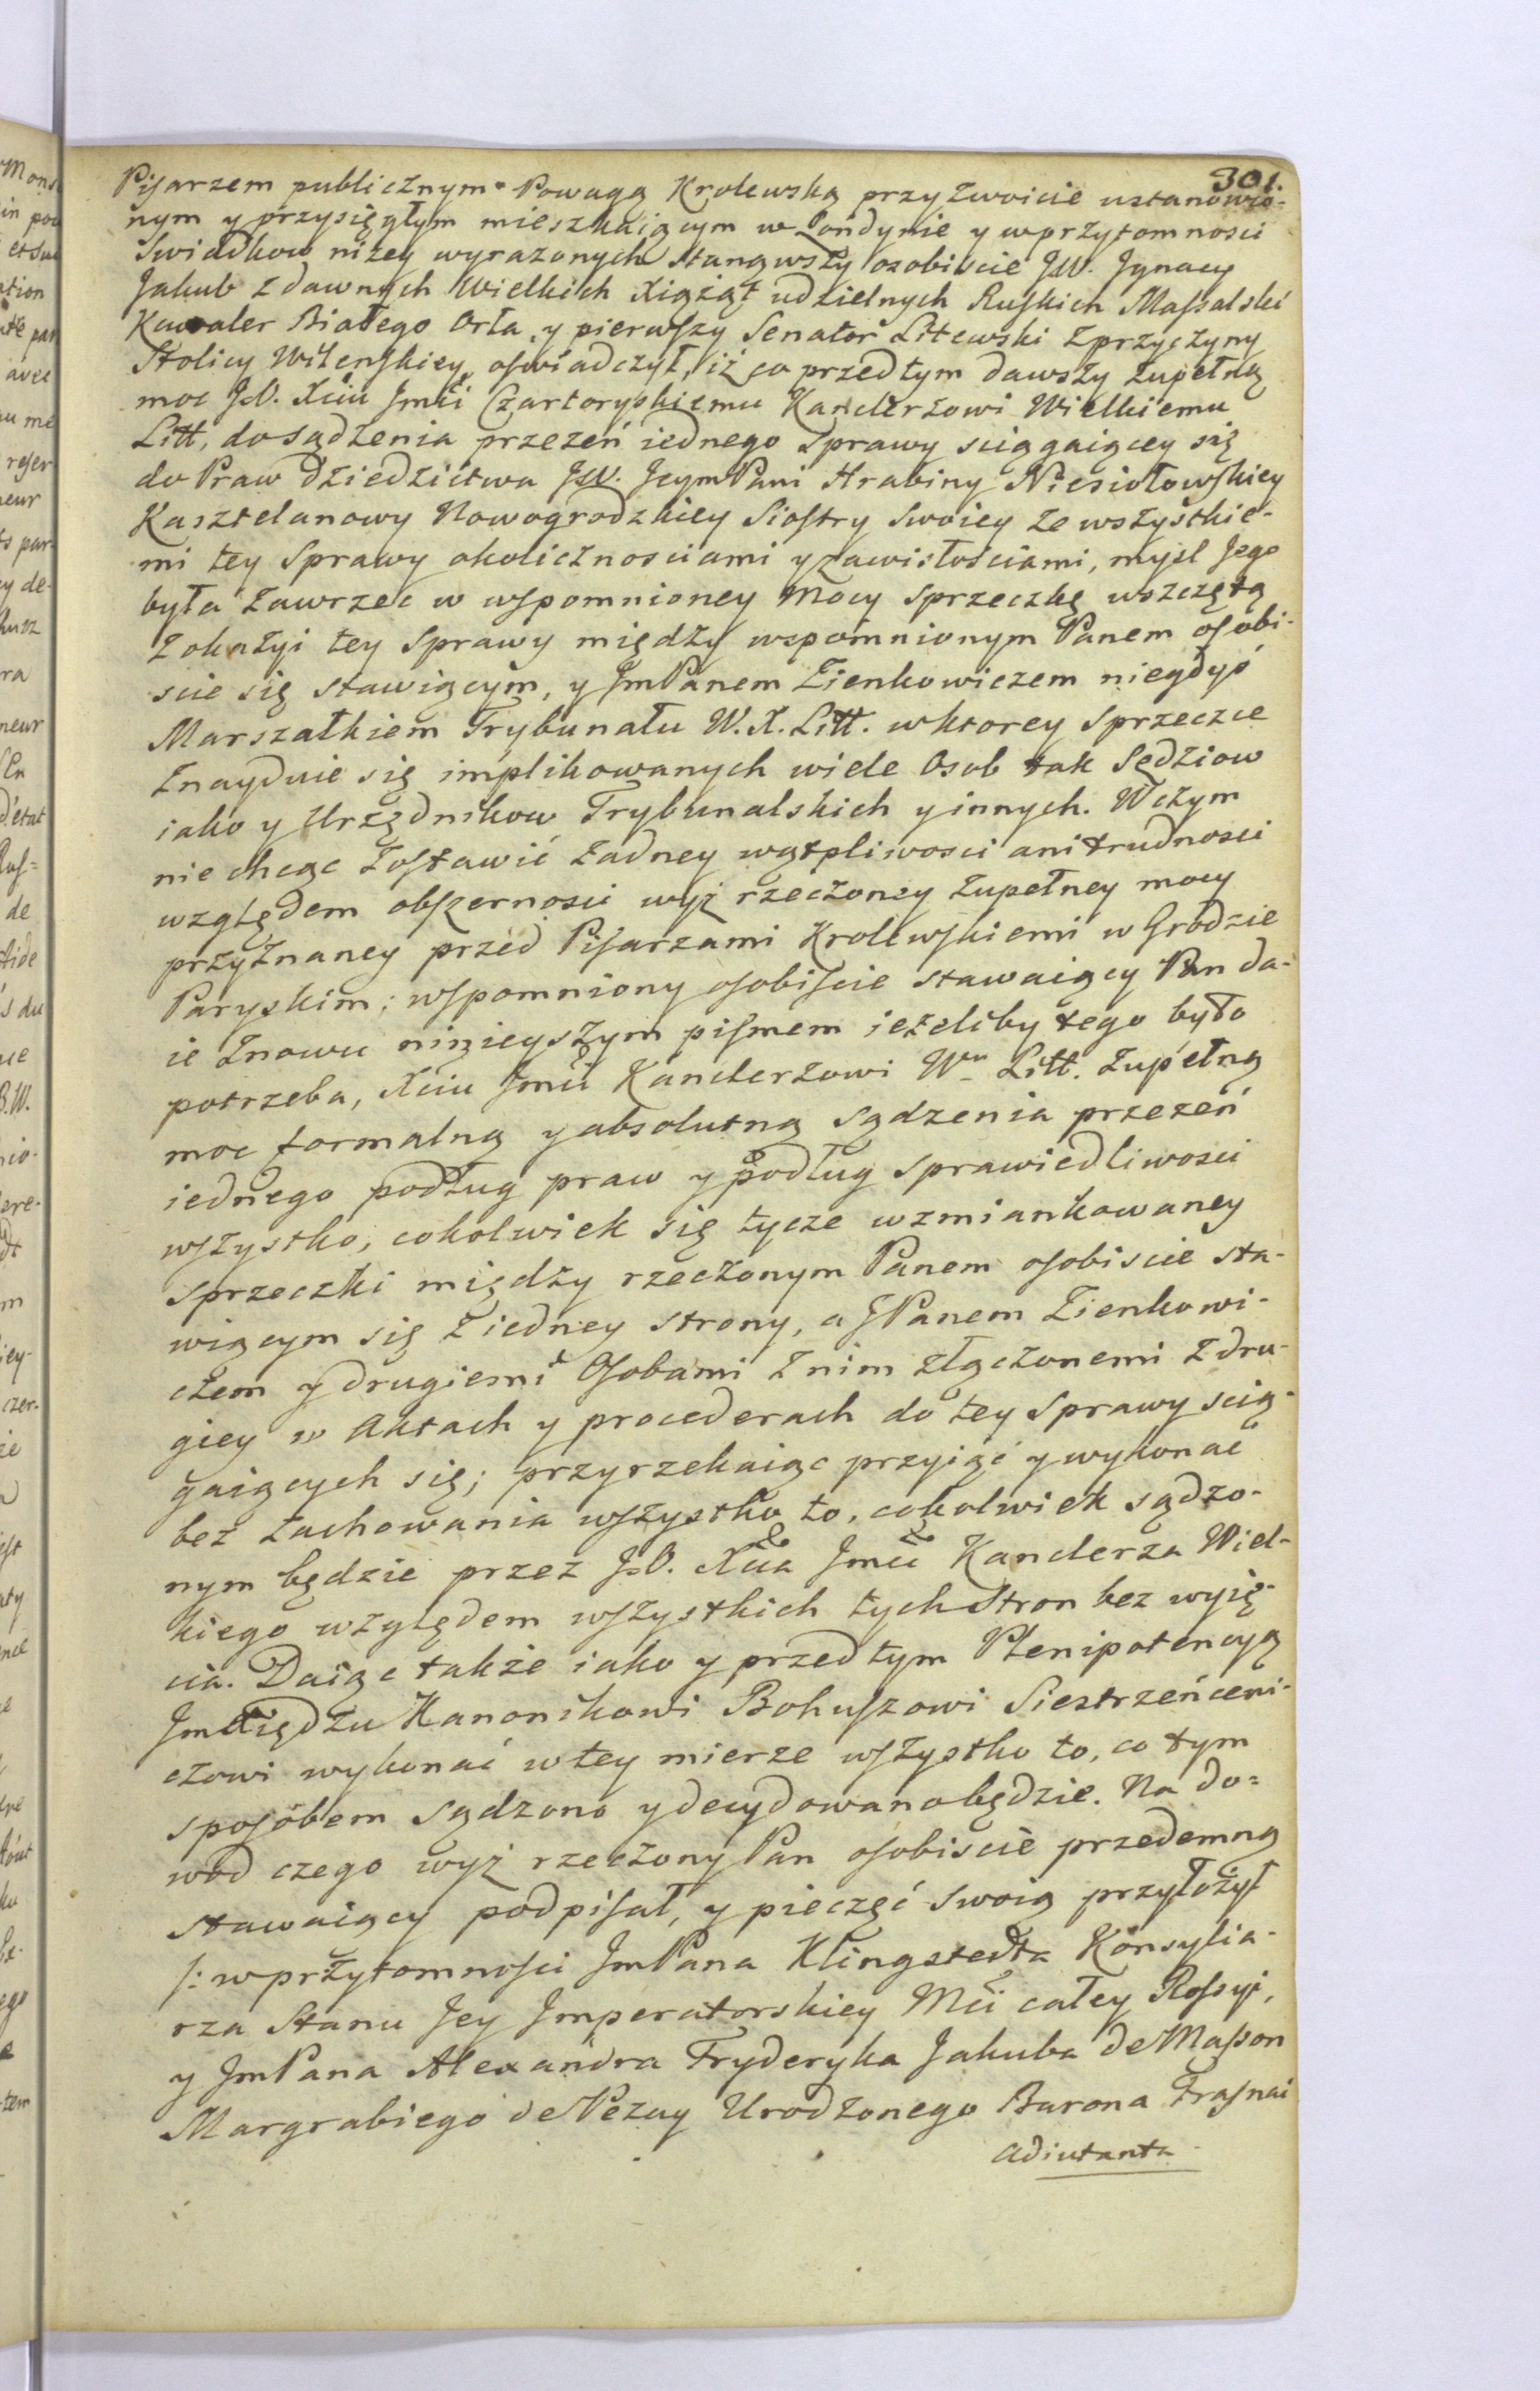 301.
Pisarzem publicznym Powagą Krolewską przyzwoicie ustanowio-
nym y przysięgłym mieszkaiącym w Londynie y wprzytomnosci
Swiadkow niżey wyrazonych stanąwszy osobiscie JW. Jgnacy
Jakub z dawnych Wielkich Xiążąt udzielnych Ruskich Massalski
Kawaler Białego Orła, y pierwszy Senator Litewski z przyczyny
Stolicy Wilenskiey, oswiadczył, iż co przedtym dawszy zupełną
moc J.O. Xciu Jmci Czartoryskiemu Kanclerzowi Wielkiemu
Litt, do sądzenia przezeń iednego Sprawy sciągaiącey się
do Praw dziedzictwa JW. JeymPani Hrabiny Niesiołowskiey
Kasztelanowy Nowogrodzkiey Siostry swoiey ze wszystkie-
mi tey Sprawy okolicznosciami y zawisłościami, mysl Jego
była zawrzec w wspomnioney Mocy sprzeczkę wszczętą
z okazyi tey Sprawy między wspomnionym Panem osobi-
scie się stawiącym, y JmPanem Zienkowiczem niegdyś
Marszałkiem Trybunału W.X.Litt. wktorey sprzeczce
znayduie się implikowanych wiele Osob tak Sędziow
iako y Urzędnikow Trybunalskich y innych. W czym
nie chcąc zostawić żadney wątpliwosci ani trudnosci
względem obszernosci wyż rzeczoney zupełney mocy
przyznaney przed Pisarzami Krolewskiemi w Grodzie
Paryskim; wspomniony osobiscie stawaiący Pan da-
ie znowu ninieyszym pismem ieżeliby tego było
potrzeba, Xciu Jmci Kanclerzowi Wu Litt. zupełną
moc formalną y absolutną sądzenia przezeń
iednego podług praw y podług sprawiedliwosci
wszystko, cokolwiek się tycze wzmiankowaney
sprzeczki między rzeczonym Panem osobiscie sta-
wiącym się z iedney strony, a JPanem Zienkowi-
czem y drugiemi Osobami z nim złączonemi z dru-
giey w Aktach y procederach do tey Sprawy scią-
gaiących się; przyrzekaiąc przyiąć y wykonać
bez zachowania wszystko to, cokolwiek sądzo-
nym będzie przez J.O. Xcia Jmci Kanclerza Wiel-
kiego względem wszystkich tych Stron bez wyię-
cia. Daiąc także iako y przedtym Plenipotencyą
JmXiędzu Kanonikowi Bohuszowi Siestrzeńcewi-
czowi wykonać w tey mierze wszystko to, co tym
sposobem sądzono y decydowano będzie. Na do-
wod czego wyż rzeczony Pan osobiscie przedemną
stawaiący podpisał, y pieczęć swoią przyłożył
/: wprzytomnosci JmPana Klingstedta Konsylia-
rza Stanu Jey Jmperatorskiey Mci całey Rossyi,
y JmPana Alexandra Fryderyka Jakuba de Masson
Margrabiego de Pezay Urodzonego Barona Frasnai
Adiutanta